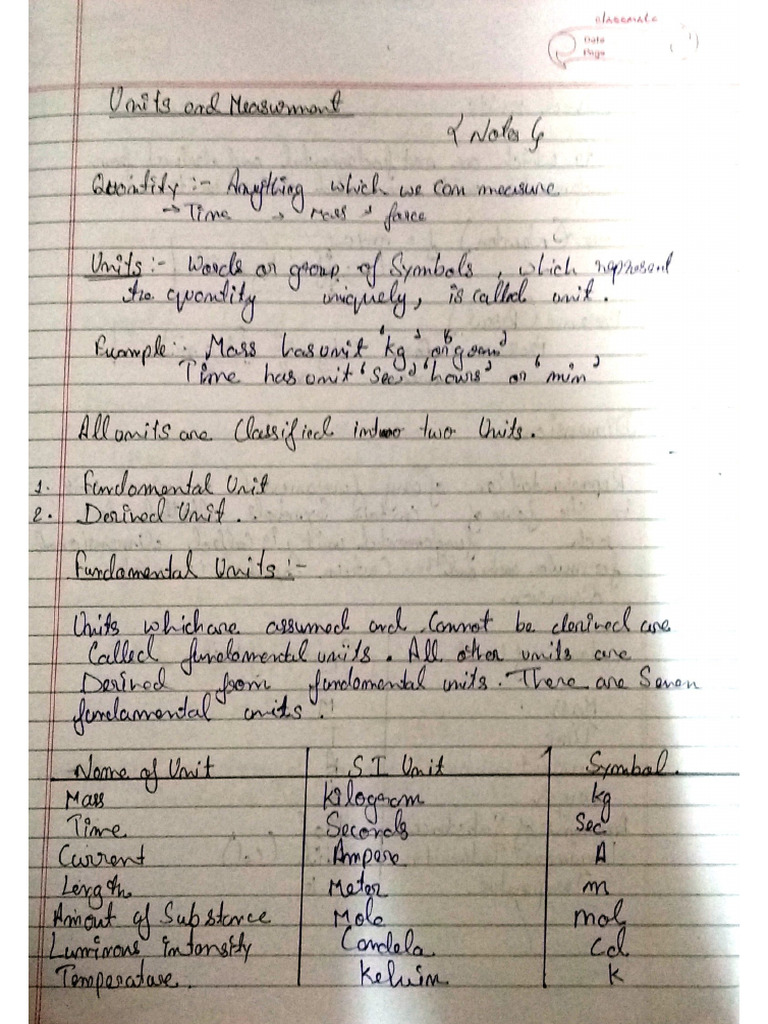 classmate
Date
Page
Units and Measurment
Notes
Quantity :- Anything which we can measure
→ Time → Mass → force
Units :- Words or group of Symbols, which represent
the quantity uniquely, is called unit.
Example :- Mass has unit 'kg' or 'gram'
Time has unit 'Sec' 'hours' or 'min'
All units are Classified into two Units.
1. Fundamental Unit
2. Derived Unit..
Fundamental Units :-
Units which are assumed and Cannot be derived are
Called fundamental units. All other units are
Derived from fundamental units. There are Seven
fundamental units.
Name of Unit SI Unit Symbol.
Mass Kilogram kg
Time Seconds Sec
Current Ampere A
Length Meter m
Amount of Substance Mole mol
Luminous intensity Candela Cd
Temperature. Kelvin K